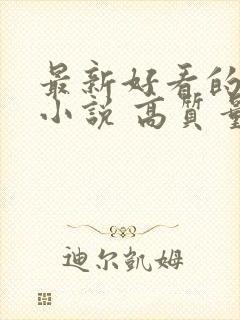 最新好看的
小说 高质量
迪尔凯姆